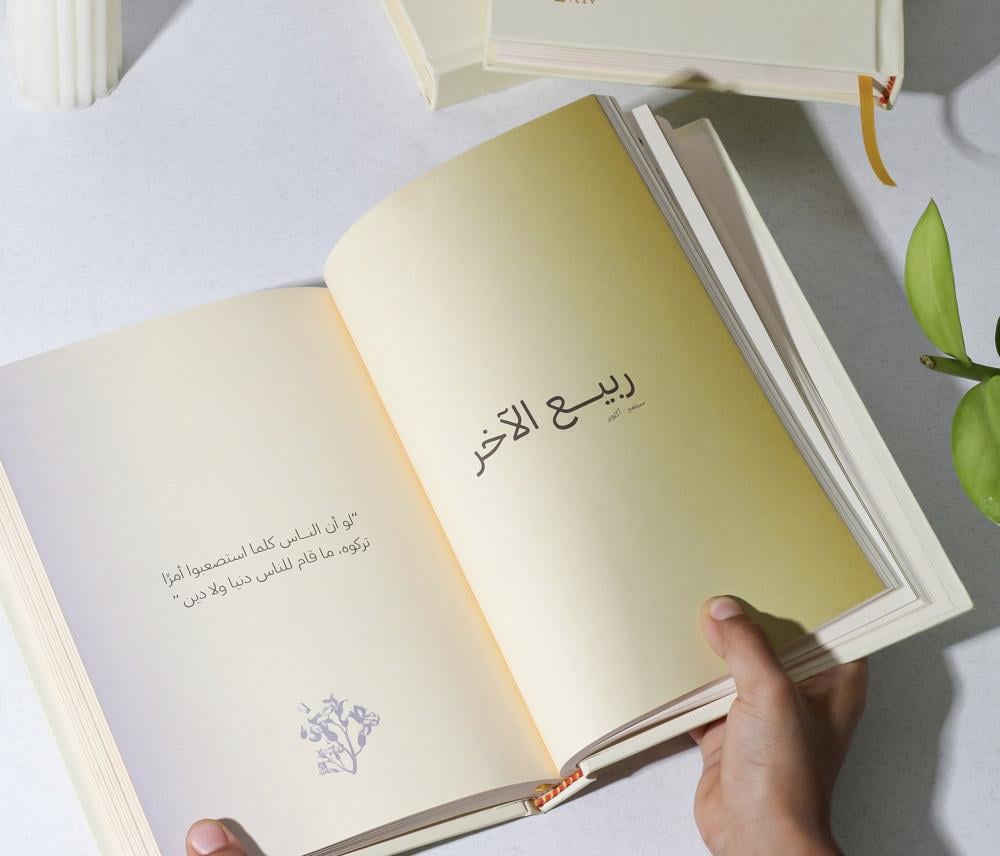 ربيـــع الآخر
سبتمبر - أكتوبر
“لو أن النــاس كلما استصعبوا أمرًا
تركوه، ما قام للناس دنيا ولا دين ”